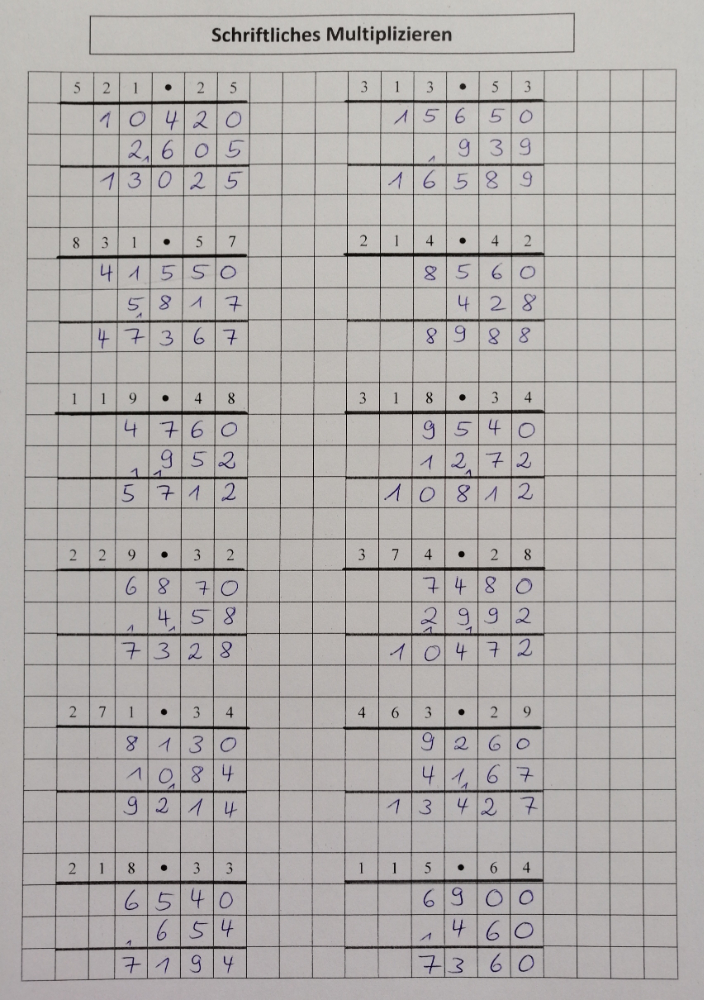 Schriftliches Multiplizieren
5 2 1 • 2 5
1 0 4 2 0
2 6 0 5
1 3 0 2 5
3 1 3 • 5 3
1 5 6 5 0
9 3 9
1 6 5 8 9
8 3 1 • 5 7
4 1 5 5 0
5 8 1 7
4 7 3 6 7
2 1 4 • 4 2
8 5 6 0
4 2 8
8 9 8 8
1 1 9 • 4 8
4 7 6 0
9 5 2
5 7 1 2
3 1 8 • 3 4
9 5 4 0
1 2 7 2
1 0 8 1 2
2 2 9 • 3 2
6 8 7 0
4 5 8
7 3 2 8
3 7 4 • 2 8
7 4 8 0
2 9 9 2
1 0 4 7 2
2 7 1 • 3 4
8 1 3 0
1 0 8 4
9 2 1 4
4 6 3 • 2 9
9 2 6 0
4 1 6 7
1 3 4 2 7
2 1 8 • 3 3
6 5 4 0
6 5 4
7 1 9 4
1 1 5 • 6 4
6 9 0 0
4 6 0
7 3 6 0